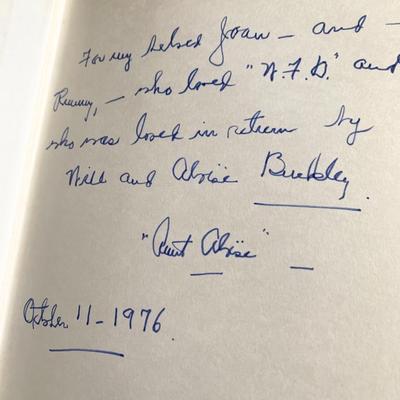 For my beloved Joan — and —
— who loved "W.F.B." and
who was loved in return by
Will and Aloïse Buckley.
"Aunt Aloïse" —
October 11 - 1976.